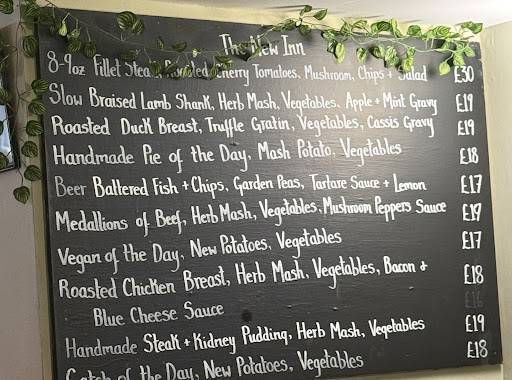 The New Inn
8-9oz Fillet Steak, Roasted Cherry Tomatoes, Mushroom, Chips + Salad £30
Slow Braised Lamb Shank, Herb Mash, Vegetables, Apple + Mint Gravy £19
Roasted Duck Breast, Truffle Gratin, Vegetables, Cassis Gravy £19
Handmade Pie of the Day, Mash Potato, Vegetables £18
Beer Battered Fish + Chips, Garden Peas, Tartare Sauce + Lemon £17
Medallions of Beef, Herb Mash, Vegetables, Mushroom Peppers Sauce £19
Vegan of the Day, New Potatoes, Vegetables £17
Roasted Chicken Breast, Herb Mash, Vegetables, Bacon + £18
Blue Cheese Sauce £16
Handmade Steak + Kidney Pudding, Herb Mash, Vegetables £19
Catch of the Day, New Potatoes, Vegetables £18